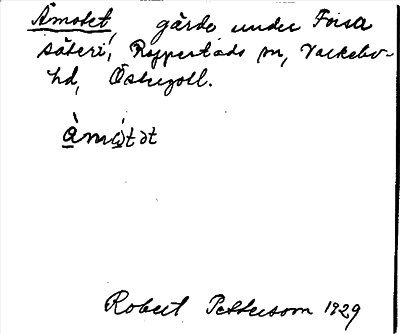 Åmotet, gärde under Forsa
säteri, Rappestads sn, Valkebo-
hd, Östergötl.
Robert Pettersson 1929